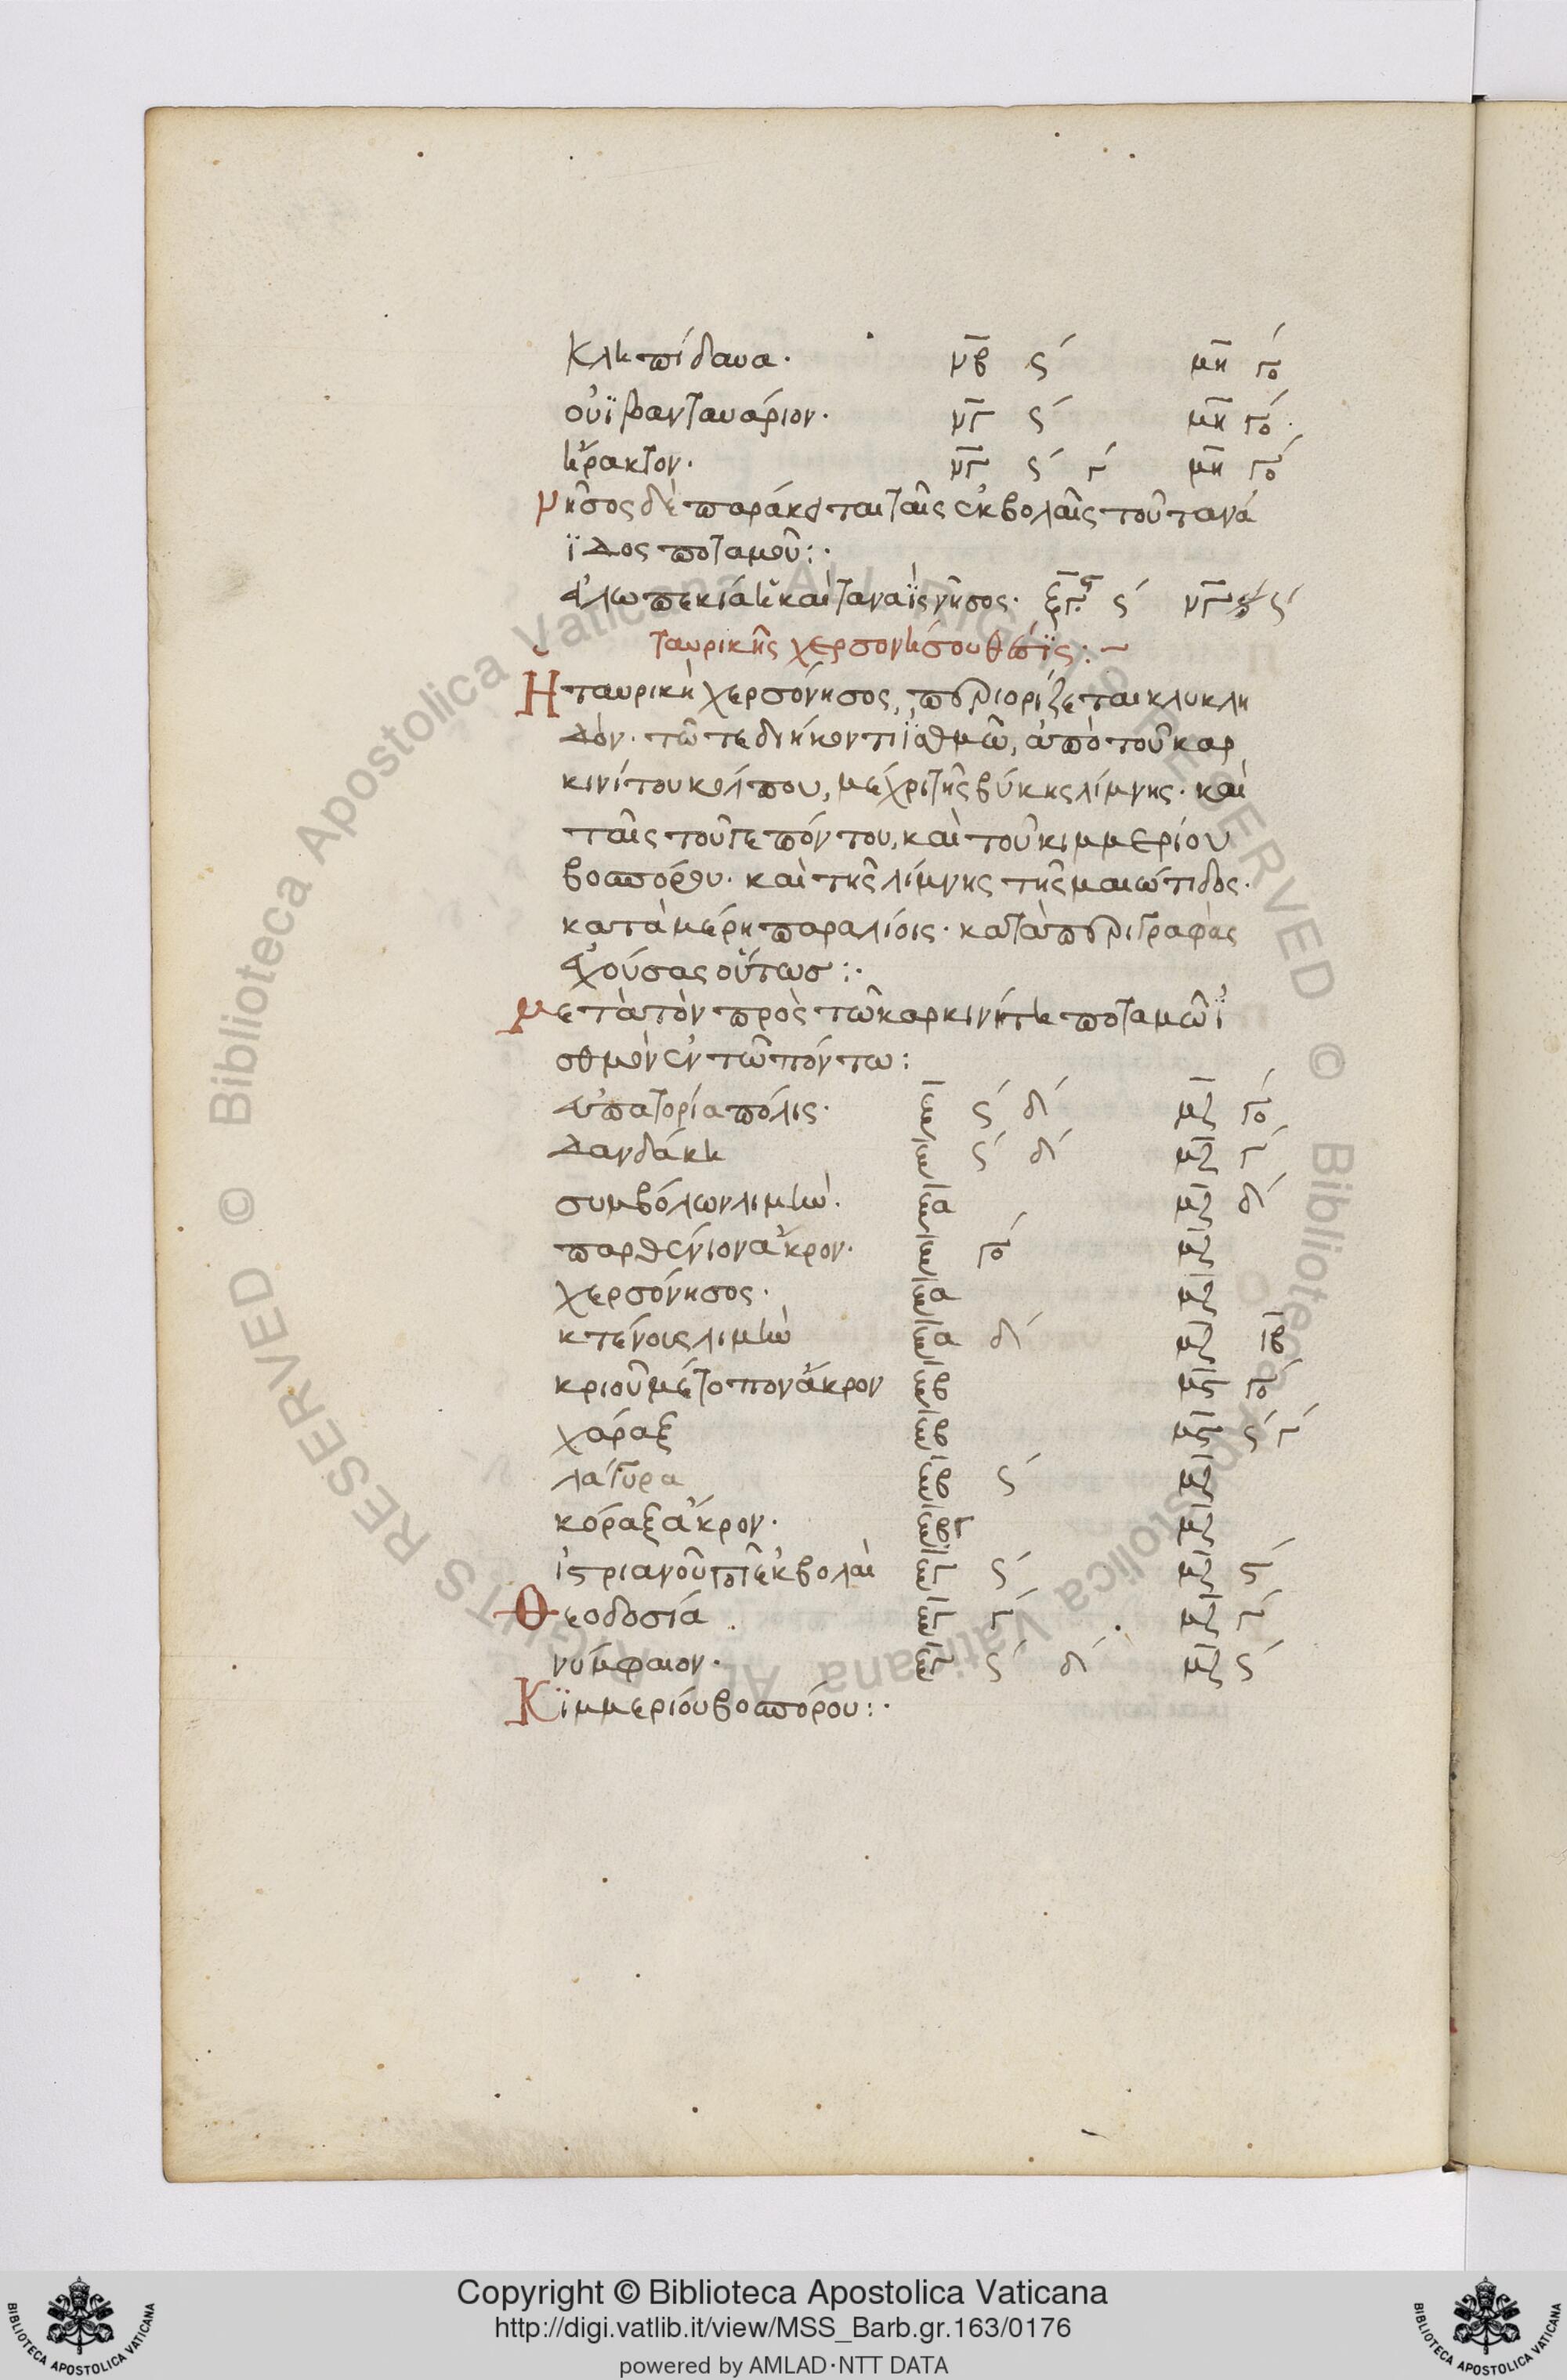 κληπίδαυα. ν̅β̅ ϛ´ μ̅η̅ γο´
οὐϊβανταυάριον. ν̅γ̅ ϛ´ μ̅η̅ γο´.
ἤρακτον. ν̅γ̅ ϛ´ γ´ μ̅η̅ γο´
νῆσος δὲ παράκειται ταῖς ἐκβολαῖς τοῦ τανά
ϊδος ποταμοῦ:.
ἀλωπεκία ἢ καὶ ταναῒς νῆσος.
ταυρικῆς χερσονήσου θέσϊς:~
Η ταυρικὴ χερσόνησος, περιορίζεται κυκλη
δὸν. τῶ τε διήκοντι ϊσθμῶ, ἀπὸ τοῦ καρ
κινίτου κόλπου, μέχρι τῆς βύκης λίμνης. καὶ
ταῖς τοῦ τε πόντου, καὶ τοῦ κιμμερίου
βοσπόρου. καὶ τῆς λίμνης τῆς μαιώτιδος.
κατὰ μέρη παραλίοις. κατὰ περιγραφὰς
ἐχούσας οὕτωσ:.
μετὰ τὸν πρὸς τῶ καρκινίτη ποταμῶ ἰ̈
σθμὸν ἐν τῶ πόντω:
εὐπατορία πόλις. ξ̅ ϛ´ δ´ μ̅ζ̅ γο´
Δανδάκη ξ̅ ϛ´ δ´ μ̅ζ̅ γ´
συμβόλων λιμὴν. ξ̅α̅ μ̅ζ̅ δ´
παρθένιον ἄκρον. ξ̅ γο´ μ̅ζ̅
χερσόνησος. ξ̅α̅ μ̅ζ̅
κτένους λιμὴν ξ̅α̅ δ´ μ̅ζ̅ ιβ
κριοῦ μέτοπον ἄκρον ξ̅β̅ μ̅ϛ̅ γο´
χάραξ ξ̅β̅ μ̅ϛ̅ ϛ´ γ´
λάγυρα ξ̅β̅ ϛ´ μ̅ζ̅
κόραξ ἄκρον. μ̅ζ̅
ἰστριανοῦ ποτ ἐκβολαὶ ξ̅γ̅ ϛ´ μ̅ζ̅ ϛ´
Θεοδοσία. ξ̅γ̅ γ´ μ̅ζ̅ γ´
νύμφαιον. ξ̅γ̅ ϛ´ δ´ μ̅ζ̅ ϛ´
Κϊμμερίου βοσπόρου:.
Biblioteca Apostolica Vaticana ALL RIGHTS RESERVED ©
Copyright © Biblioteca Apostolica Vaticana
http://digi.vatlib.it/view/MSS_Barb.gr.163/0176
powered by AMLAD·NTT DATA
BIBLIOTECA APOSTOLICA VATICANA
BIBLIOTECA APOSTOLICA VATICANA